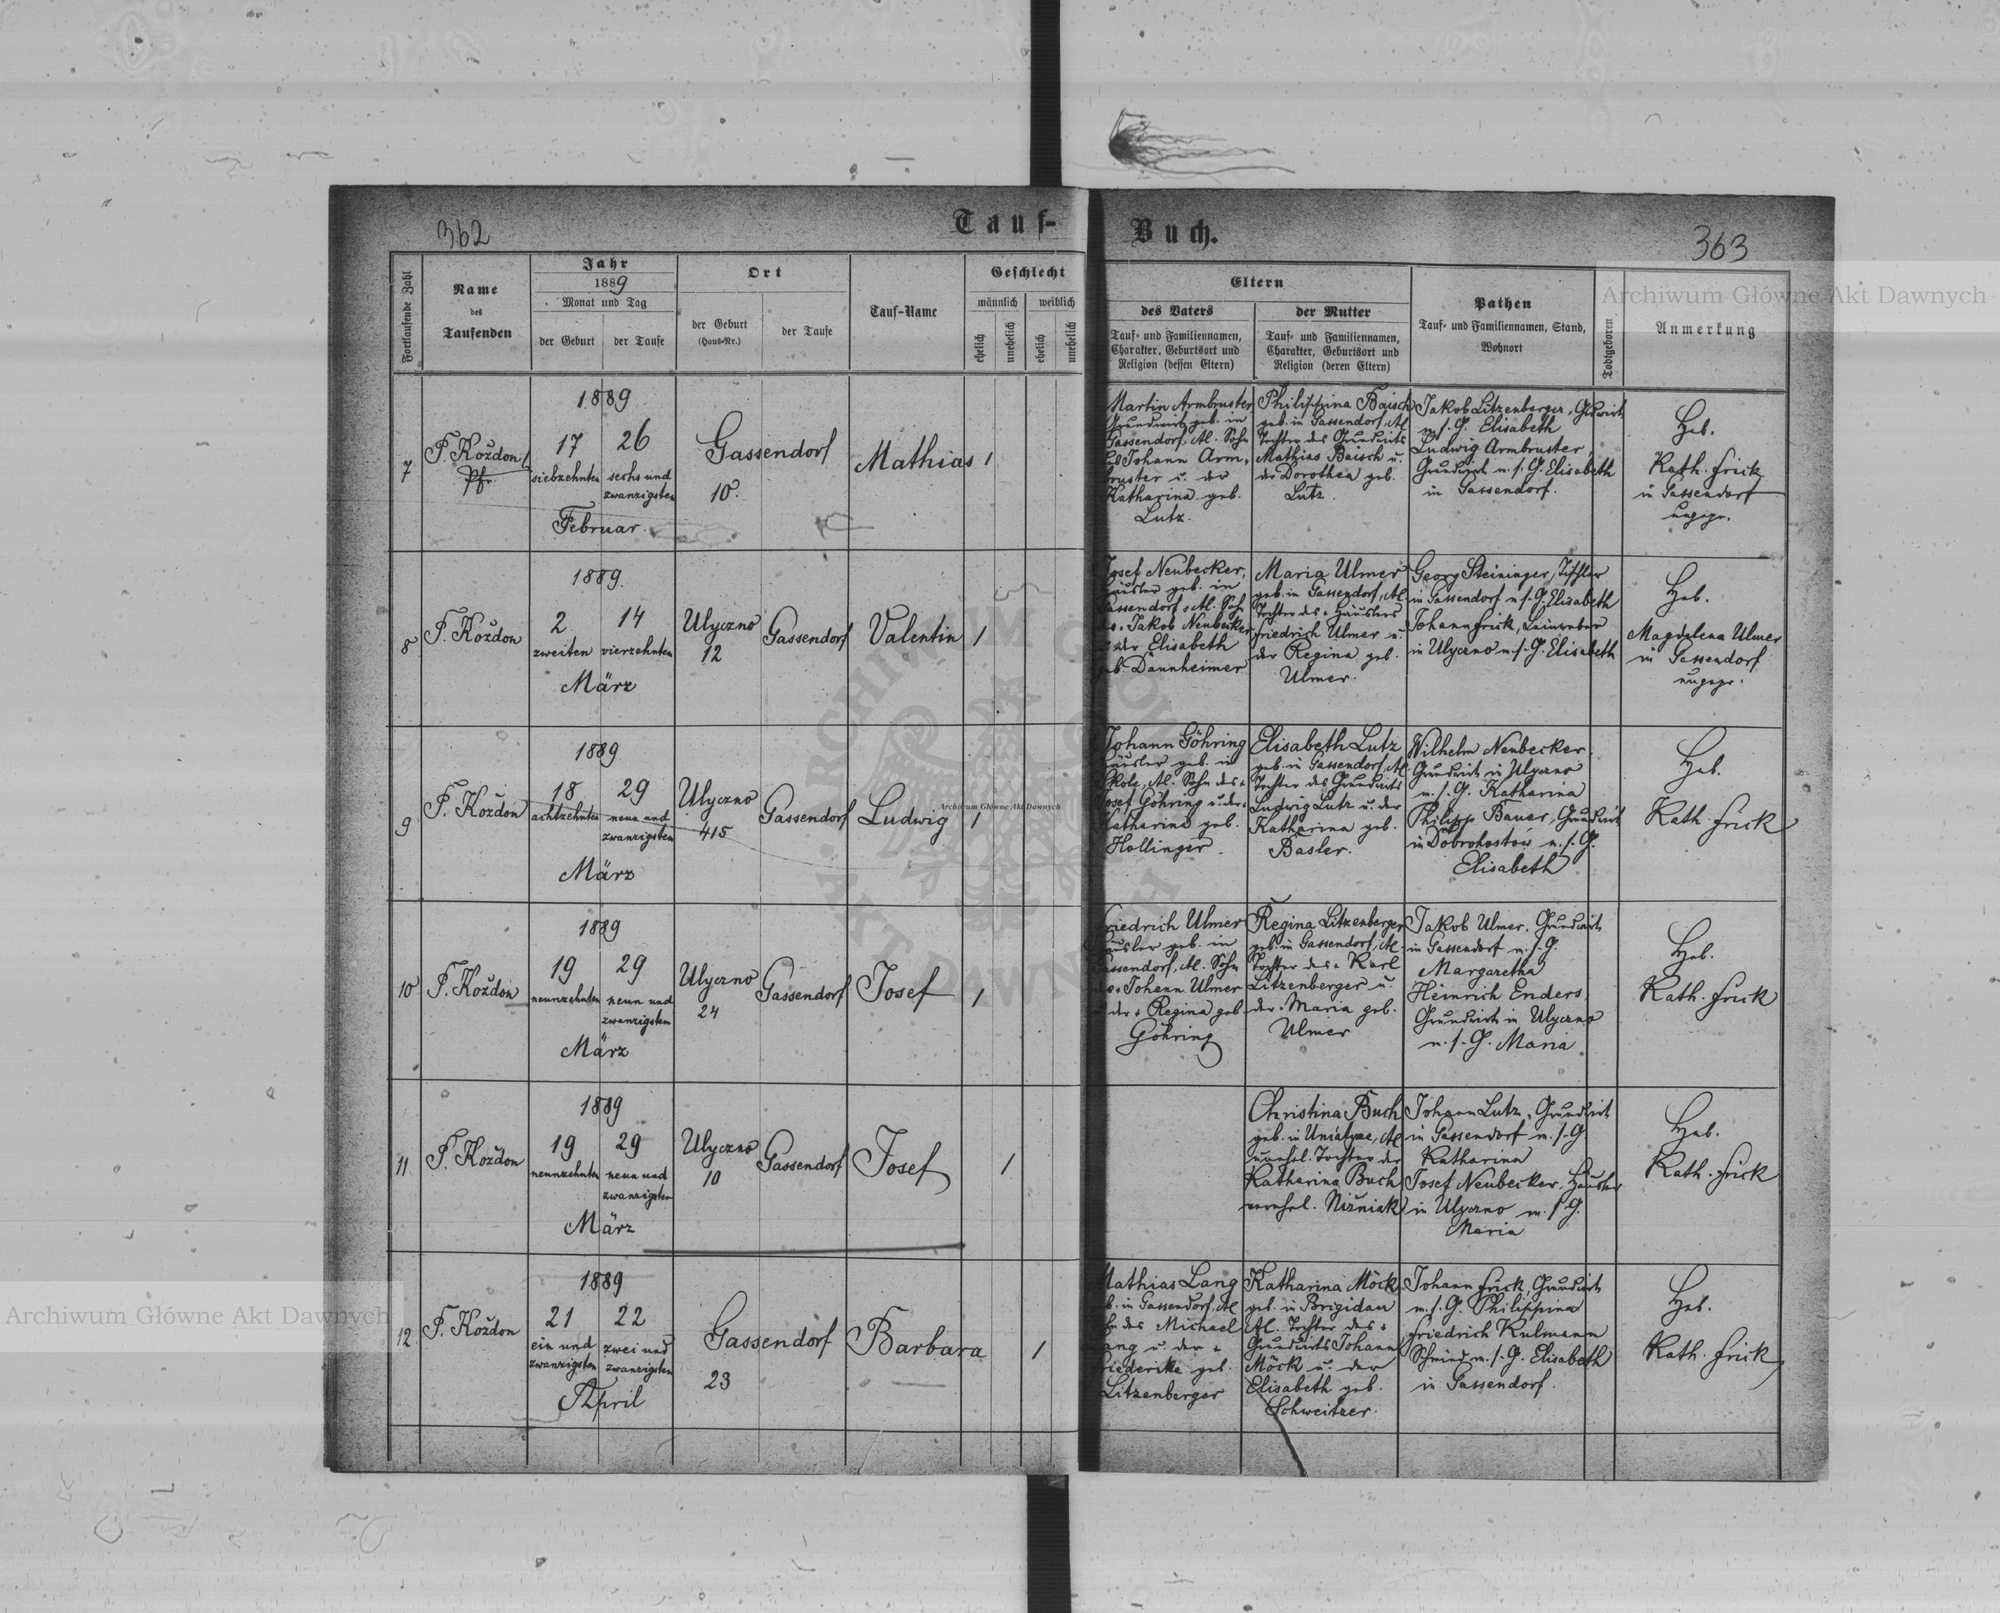 362
Tauf-
Buch.
363
Fortlaufende Zahl
Name
des
Taufenden
Jahr
1889
Monat und Tag
der Geburt
der Taufe
Ort
der Geburt
(Haus-Nr.)
der Taufe
Tauf-Name
Geschlecht
männlich
weiblich
ehelich
unehelich
ehelich
unehelich
Eltern
des Vaters
Tauf- und Familiennamen,
Charakter, Geburtsort und
Religion (dessen Eltern)
der Mutter
Tauf- und Familiennamen,
Charakter, Geburtsort und
Religion (deren Eltern)
Pathen
Tauf- und Familiennamen, Stand,
Wohnort
Todtgeboren
Anmerkung
Archiwum Główne Akt Dawnych
7
F. Koždon
Pf.
1889
17
siebzehnten
26
sechs und
zwanzigsten
Februar
Gassendorf
10.
Mathias
1
Martin Armbruster
Grundwirt geb. in
Gassendorf, Al. Sohn
des Johann Arm-
bruster u. der
Katharina geb.
Lutz.
Philippina Baisch
geb. in Gassendorf, Al.
Tochter des Grundwirts
Mathias Baisch u.
der Dorothea geb.
Lutz
Jakob Litzenberger, Grdwirt
m. s. G. Elisabeth
Ludwig Armbruster,
Grundwirt m. s. G. Elisabeth
in Gassendorf.
Heb.
Kath. Frick
in Gassendorf
ungepr.
8
F. Koždon
1889.
2
zweiten
14
vierzehnten
März
Ulyczno
12
Gassendorf
Valentin
1
Josef Neubecker,
Häusler geb. in
Gassendorf, Al. Sohn
Jakob Neubecker
der Elisabeth
geb. Dannheimer
Maria Ulmer
geb. in Gassendorf, Al.
Tochter des Häuslers
Friedrich Ulmer u.
der Regina geb.
Ulmer.
Georg Steininger, Tischler
in Gassendorf m. s. G. Elisabeth
Johann Frick, Leinweber
in Ulyczno m. s. G. Elisabeth
Heb.
Magdalena Ulmer
in Gassendorf
ungepr.
9
F. Koždon
1889
18
achtzehnten
29
neun und
zwanzigsten
März
Ulyczno
415
Gassendorf
Ludwig
1
Johann Göhring
Häusler geb. in
Skole, Al. Sohn des
Josef Göhring u. der
Katharina geb.
Hollinger
Elisabeth Lutz
geb. in Gassendorf, Al.
Tochter des Grundwirts
Ludwig Lutz u. der
Katharina geb.
Basler.
Wilhelm Neubecker
Grundwirt in Ulyczno
m. s. G. Katharina
Philipp Bauer, Grundwirt
in Dobrohostów m. s. G.
Elisabeth
Heb.
Kath. Frick
10
F. Koždon
1889
19
neunzehnten
29
neun und
zwanzigsten
März
Ulyczno
24
Gassendorf
Josef
1
Friedrich Ulmer
Häusler geb. in
Gassendorf, Al. Sohn
Johann Ulmer
der Regina geb.
Göhring
Regina Litzenberger
geb. in Gassendorf, Al.
Tochter des Karl
Litzenberger u.
der Maria geb.
Ulmer
Jakob Ulmer, Grundwirt
in Gassendorf m. s. G.
Margaretha
Heinrich Enders,
Grundwirt in Ulyczno
m. s. G. Maria
Heb.
Kath. Frick
11
F. Koždon
1889
19
neunzehnten
29
neun und
zwanzigsten
März
Ulyczno
10
Gassendorf
Josef
1
Christina Buch
geb. in Uniatycze, Al.
unehel. Tochter der
Katharina Buch
verehel. Nižniak
Johann Lutz, Grundwirt
in Gassendorf m. s. G.
Katharina
Josef Neubecker, Häusler
in Ulyczno m. s. G.
Maria
Heb.
Kath. Frick
12
F. Koždon
1889
21
ein und
zwanzigsten
22
zwei und
zwanzigsten
April
Gassendorf
23
Barbara
1
Mathias Lang
geb. in Gassendorf, Al.
des Michael
Lang u. der
Friederike geb.
Litzenberger
Katharina Möck
geb. in Brigidau
Al. Tochter des
Grundwirts Johann
Möck u. der
Elisabeth geb.
Schweitzer.
Johann Frick, Grundwirt
m. s. G. Philippina
Friedrich Kulmann
Schmied m. s. G. Elisabeth
in Gassendorf.
Heb.
Kath. Frick
Archiwum Główne Akt Dawnych
Archiwum Główne Akt Dawnych